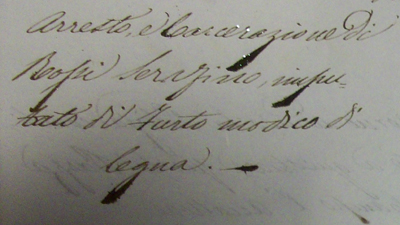 Arresto, e Carcerazione di
Rossi Serafino, impu-
tato di furto modico di
legna. —